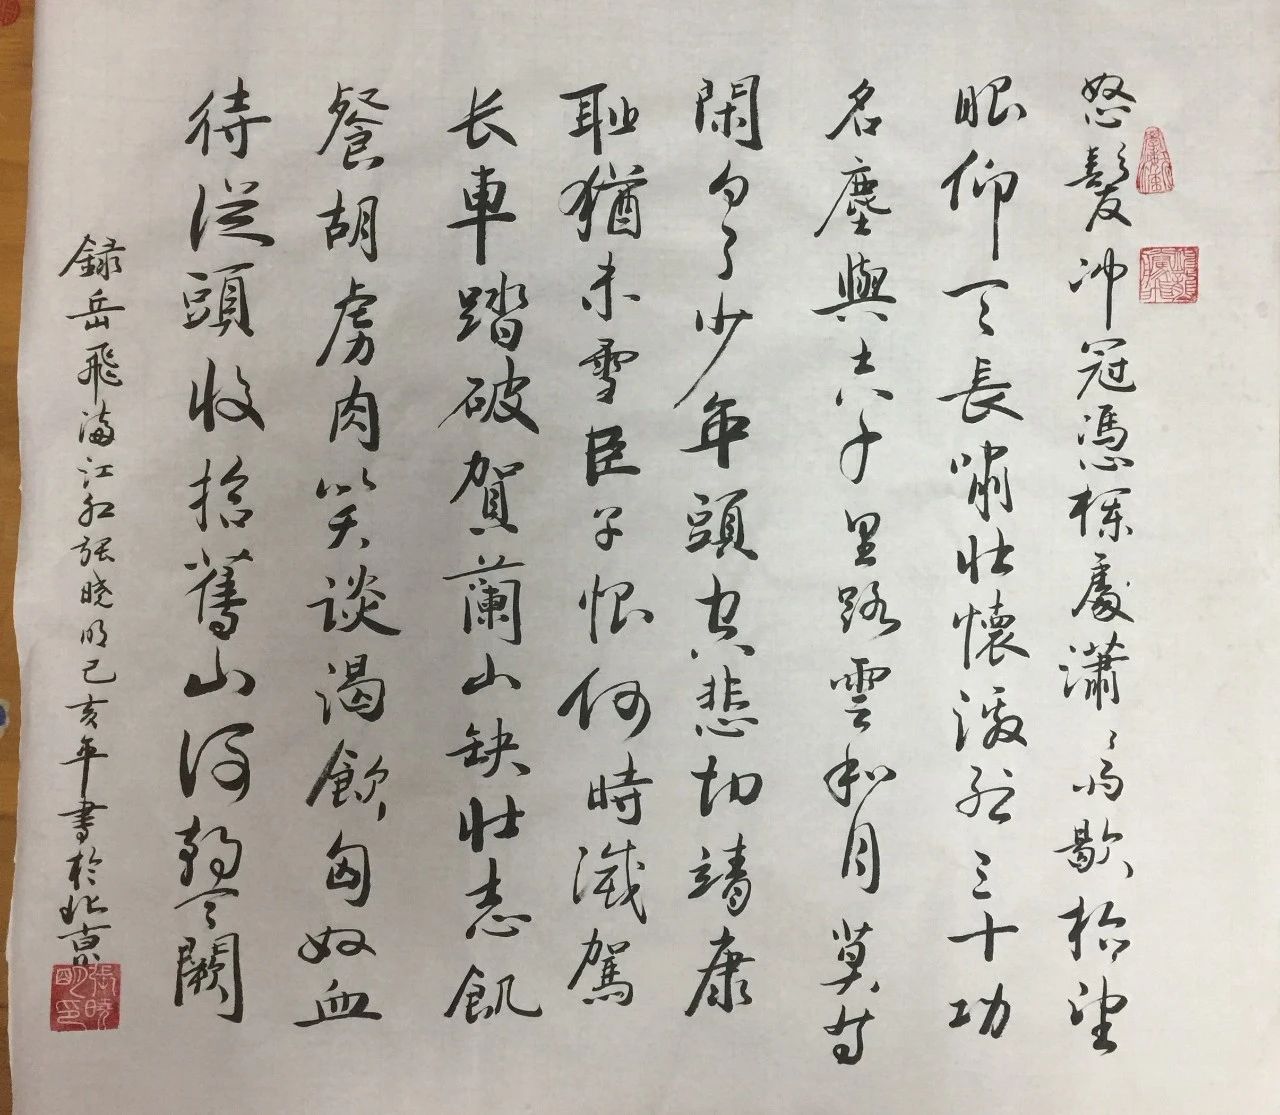 怒髮冲冠憑欄處瀟々雨歇抬望
眼仰天長嘯壯懷激烈三十功
名塵與土八千里路雲和月莫等
閑白了少年頭空悲切靖康
耻猶未雪臣子恨何時滅駕
长車踏破賀蘭山缺壯志飢
餐胡虜肉笑談渴飲匈奴血
待從頭收拾舊山河朝天闕
錄岳飛滿江紅張晓明己亥年書於北京
張曉明印